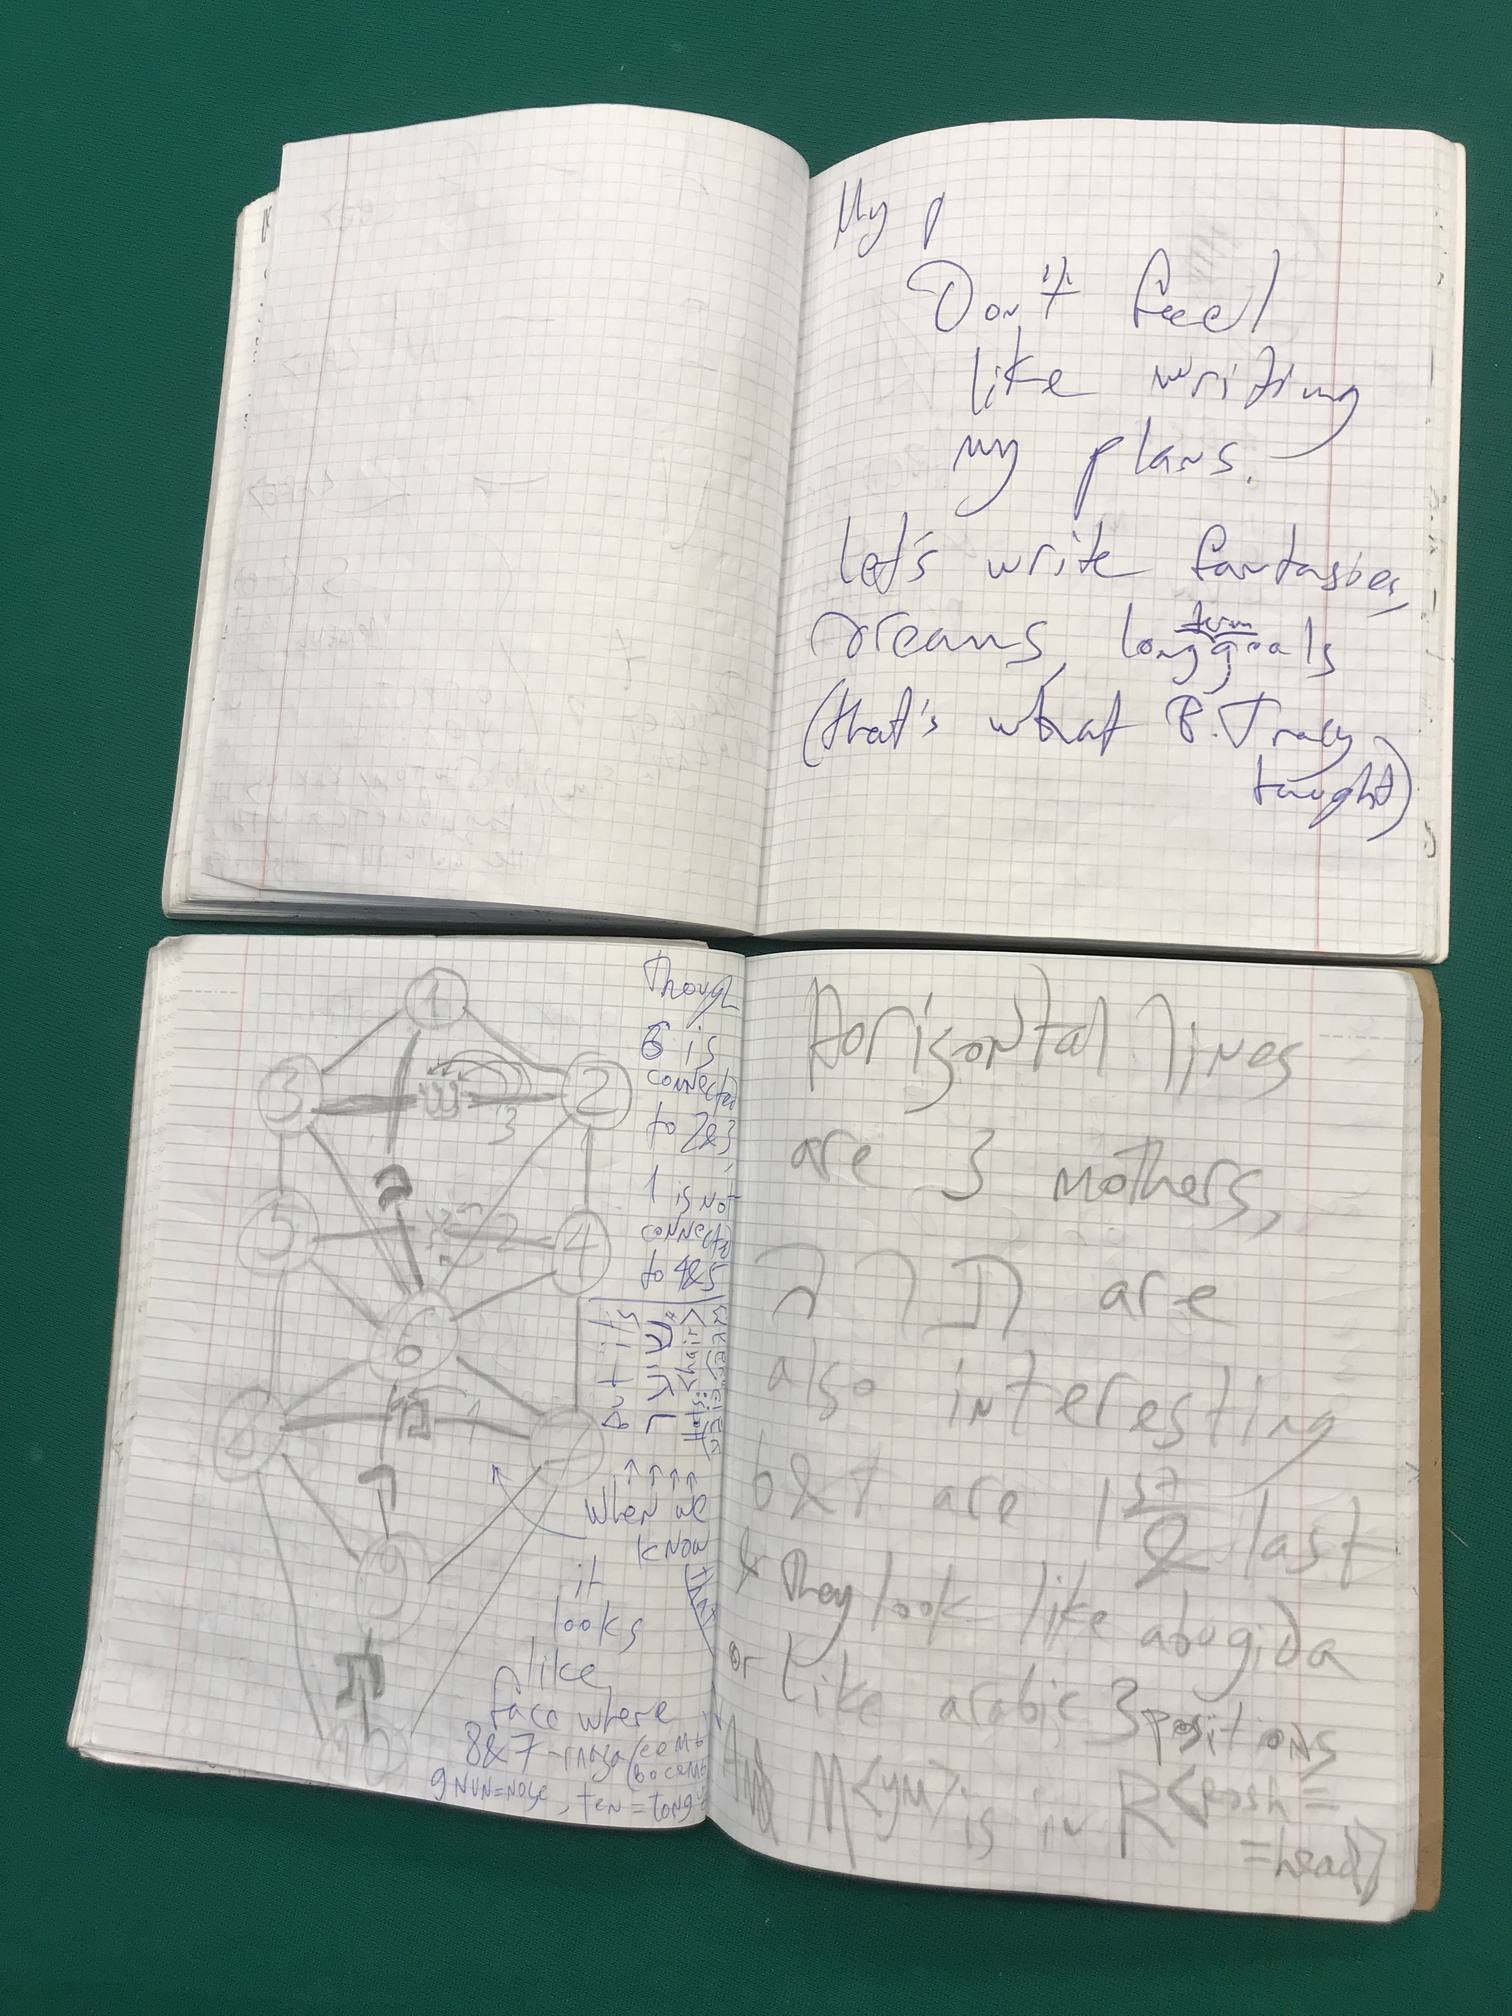 My p
Don't feel
like writing
my plans.
Let's write fantasies,
dreams, long term goals
(that's what B. Tracy
taught)
1
3
ש
2
3
ב
5
2
4
6
מ
1
8
7
ר
9
ת
10
Though
6 is
connected
to 2&3,
1 is not
connected
to 4&5
But it's
שיער
<hair>
when we
know
that
it
looks
like
face where
8&7 -
9 NUN=NOSE, ten=tong
Horizontal lines
are 3 mothers,
ב ר ת are
also interesting
b&t are 1st & last
& They look like abugida
or like arabic 3 positions
And M<ум> is in R<Rosh=
=head>